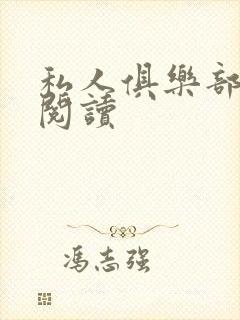 私人俱樂部
閱讀
冯志强